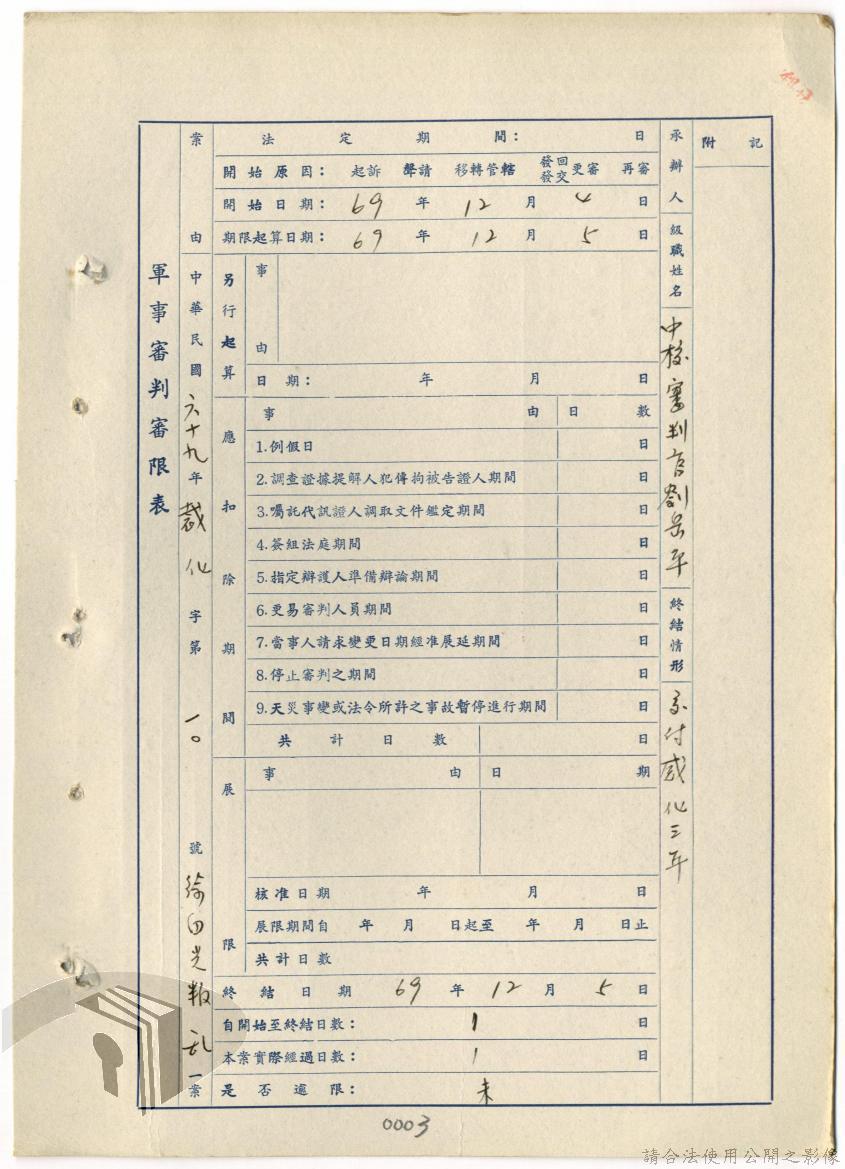 軍事審判審限表
案由 中華民國六十九年裁化字第一〇號徐白光叛乱一案
法定期間： 日
開始原因： 起訴 聲請 移轉管轄 發回發交更審 再審
開始日期： 69 年 12 月 4 日
期限起算日期： 69 年 12 月 5 日
另行起算
事由
日期： 年 月 日
應扣除期間
事由 日數
1.例假日 日
2.調查證據提解人犯傳拘被告證人期間 日
3.囑託代訊證人調取文件鑑定期間 日
4.簽組法庭期間 日
5.指定辯護人準備辯論期間 日
6.更易審判人員期間 日
7.當事人請求變更日期經准展延期間 日
8.停止審判之期間 日
9.天災事變或法令所許之事故暫停進行期間 日
共計日數 日
展限
事由 日期
核准日期 年 月 日
展限期間自 年 月 日起至 年 月 日止
共計日數
終結日期 69 年 12 月 5 日
自開始至終結日數： 1 日
本案實際經過日數： 1 日
是否逾限： 未
承辦人級職姓名 中校審判官劉岳平
終結情形 交付感化三年
附記
0003
請合法使用公開之影像